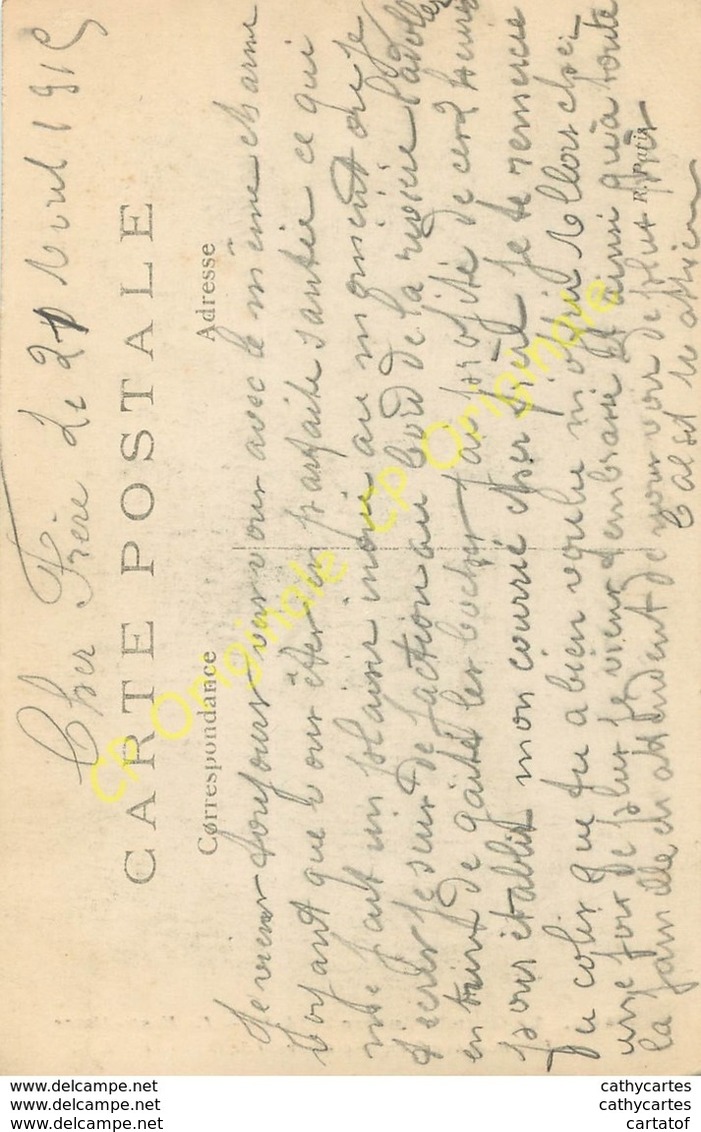 Cher Frère Le 21 Avril 1915
CARTE POSTALE
Correspondance
Adresse
Je viens toujours vers vous avec le même charme
Voyant que vous êtes en parfaite santée ce qui
me fait un plaisir moi au moment où je
d'ecrire je suis de faction au bord de la rivière
en train de gaité les boches j'ai profité de ces 2 heures
pour établir mon courrié cher frère je te remercie
du colis que tu a bien voulu Allors cher
une fois de plus je viens d'embrassé et ainsi qu'à toute
la famille en attendent de vous voir de plus près
R. Paris
CP Originale CP Originale
www.delcampe.net
www.delcampe.net
www.delcampe.net
cathycartes
cathycartes
cartatof